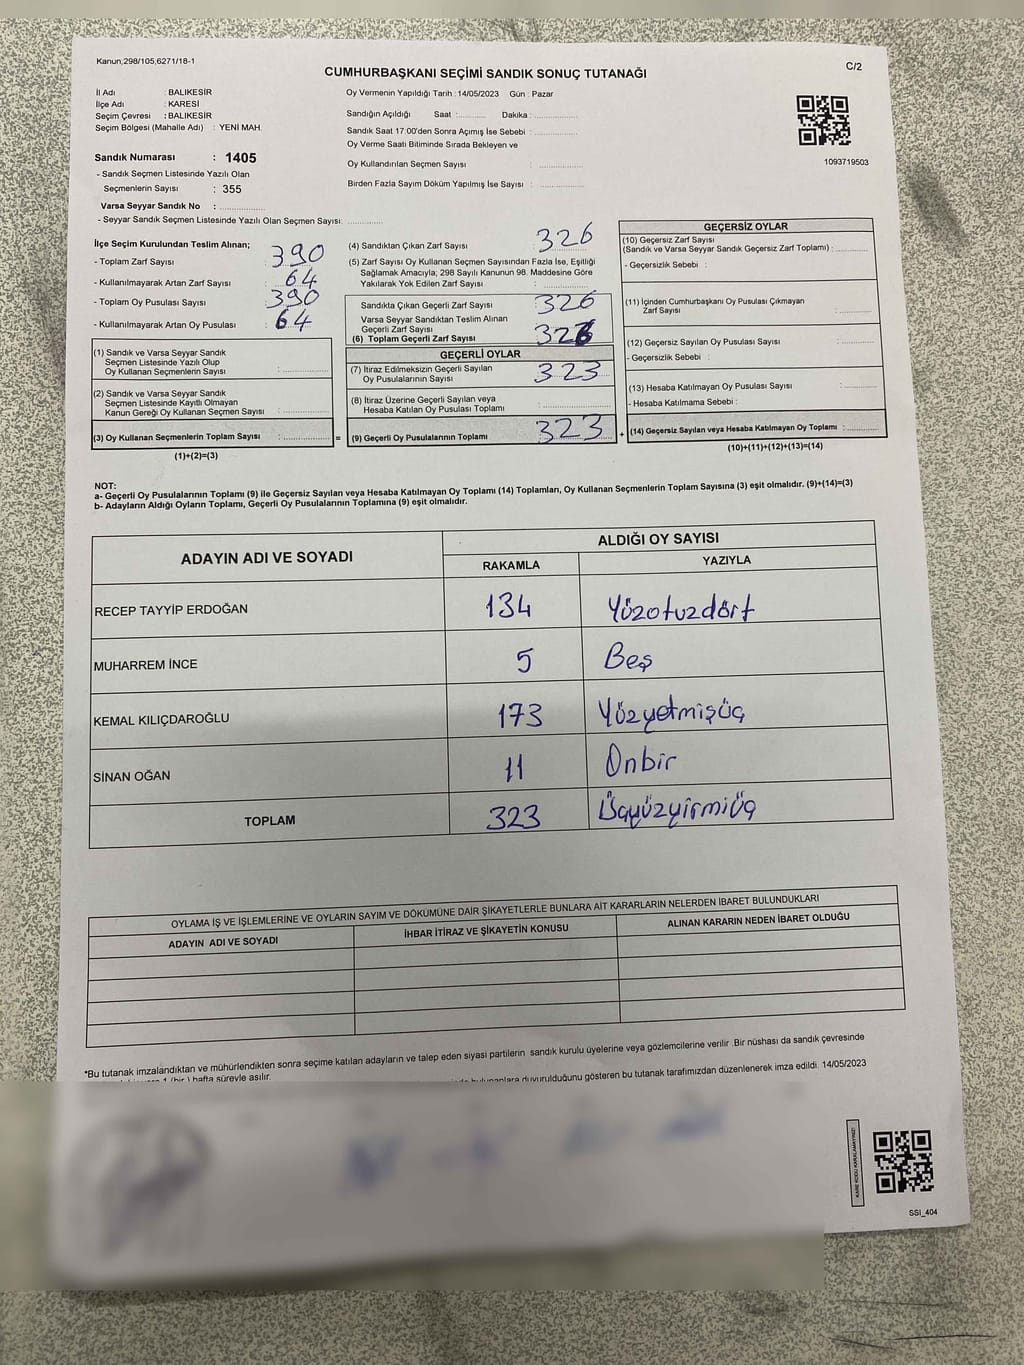 Kanun,298/105,6271/18-1
C/2
CUMHURBAŞKANI SEÇİMİ SANDIK SONUÇ TUTANAĞI
İl Adı : BALIKESİR
İlçe Adı : KARESİ
Seçim Çevresi : BALIKESİR
Seçim Bölgesi (Mahalle Adı) : YENİ MAH.
Sandık Numarası : 1405
- Sandık Seçmen Listesinde Yazılı Olan
Seçmenlerin Sayısı : 355
Varsa Seyyar Sandık No :
- Seyyar Sandık Seçmen Listesinde Yazılı Olan Seçmen Sayısı:
Oy Vermenin Yapıldığı Tarih : 14/05/2023 Gün : Pazar
Sandığın Açıldığı Saat : Dakika :
Sandık Saat 17:00'den Sonra Açımış İse Sebebi :
Oy Verme Saati Bitiminde Sırada Bekleyen ve
Oy Kullandırılan Seçmen Sayısı :
Birden Fazla Sayım Döküm Yapılmış İse Sayısı :
1093719503
İlçe Seçim Kurulundan Teslim Alınan;
- Toplam Zarf Sayısı : 390
- Kullanılmayarak Artan Zarf Sayısı : 64
- Toplam Oy Pusulası Sayısı : 390
- Kullanılmayarak Artan Oy Pusulası : 64
(1) Sandık ve Varsa Seyyar Sandık
Seçmen Listesinde Yazılı Olup
Oy Kullanan Seçmenlerin Sayısı :
(2) Sandık ve Varsa Seyyar Sandık
Seçmen Listesinde Kayıtlı Olmayan
Kanun Gereği Oy Kullanan Seçmen Sayısı :
(3) Oy Kullanan Seçmenlerin Toplam Sayısı : =
(1)+(2)=(3)
(4) Sandıktan Çıkan Zarf Sayısı : 326
(5) Zarf Sayısı Oy Kullanan Seçmen Sayısından Fazla İse, Eşitliği
Sağlamak Amacıyla, 298 Sayılı Kanunun 98. Maddesine Göre
Yakılarak Yok Edilen Zarf Sayısı :
Sandıkta Çıkan Geçerli Zarf Sayısı : 326
Varsa Seyyar Sandıktan Teslim Alınan
Geçerli Zarf Sayısı :
(6) Toplam Geçerli Zarf Sayısı : 326
GEÇERLİ OYLAR
(7) İtiraz Edilmeksizin Geçerli Sayılan
Oy Pusulalarının Sayısı : 323
(8) İtiraz Üzerine Geçerli Sayılan veya
Hesaba Katılan Oy Pusulası Toplamı :
(9) Geçerli Oy Pusulalarının Toplamı : 323 +
GEÇERSİZ OYLAR
(10) Geçersiz Zarf Sayısı
(Sandık ve Varsa Seyyar Sandık Geçersiz Zarf Toplamı) :
- Geçersizlik Sebebi :
(11) İçinden Cumhurbaşkanı Oy Pusulası Çıkmayan
Zarf Sayısı :
(12) Geçersiz Sayılan Oy Pusulası Sayısı :
- Geçersizlik Sebebi :
(13) Hesaba Katılmayan Oy Pusulası Sayısı :
- Hesaba Katılmama Sebebi :
(14) Geçersiz Sayılan veya Hesaba Katılmayan Oy Toplamı :
(10)+(11)+(12)+(13)=(14)
NOT:
a- Geçerli Oy Pusulalarının Toplamı (9) ile Geçersiz Sayılan veya Hesaba Katılmayan Oy Toplamı (14) Toplamları, Oy Kullanan Seçmenlerin Toplam Sayısına (3) eşit olmalıdır. (9)+(14)=(3)
b- Adayların Aldığı Oyların Toplamı, Geçerli Oy Pusulalarının Toplamına (9) eşit olmalıdır.
ADAYIN ADI VE SOYADI ALDIĞI OY SAYISI
RAKAMLA YAZIYLA
RECEP TAYYİP ERDOĞAN 134 Yüzotuzdört
MUHARREM İNCE 5 Beş
KEMAL KILIÇDAROĞLU 173 Yüzyetmişüç
SİNAN OĞAN 11 Onbir
TOPLAM 323 Üçyüzyirmiüç
OYLAMA İŞ VE İŞLEMLERİNE VE OYLARIN SAYIM VE DÖKÜMÜNE DAİR ŞİKAYETLERLE BUNLARA AİT KARARLARIN NELERDEN İBARET BULUNDUKLARI
ADAYIN ADI VE SOYADI İHBAR İTİRAZ VE ŞİKAYETİN KONUSU ALINAN KARARIN NEDEN İBARET OLDUĞU
*Bu tutanak imzalandıktan ve mühürlendikten sonra seçime katılan adayların ve talep eden siyasi partilerin sandık kurulu üyelerine veya gözlemcilerine verilir .Bir nüshası da sandık çevresinde
1 (bir ) hafta süreyle asılır.
bulunanlara duyurulduğunu gösteren bu tutanak tarafımızdan düzenlenerek imza edildi. 14/05/2023
KARE KODU KARALAMAYINIZ!
SSI_404